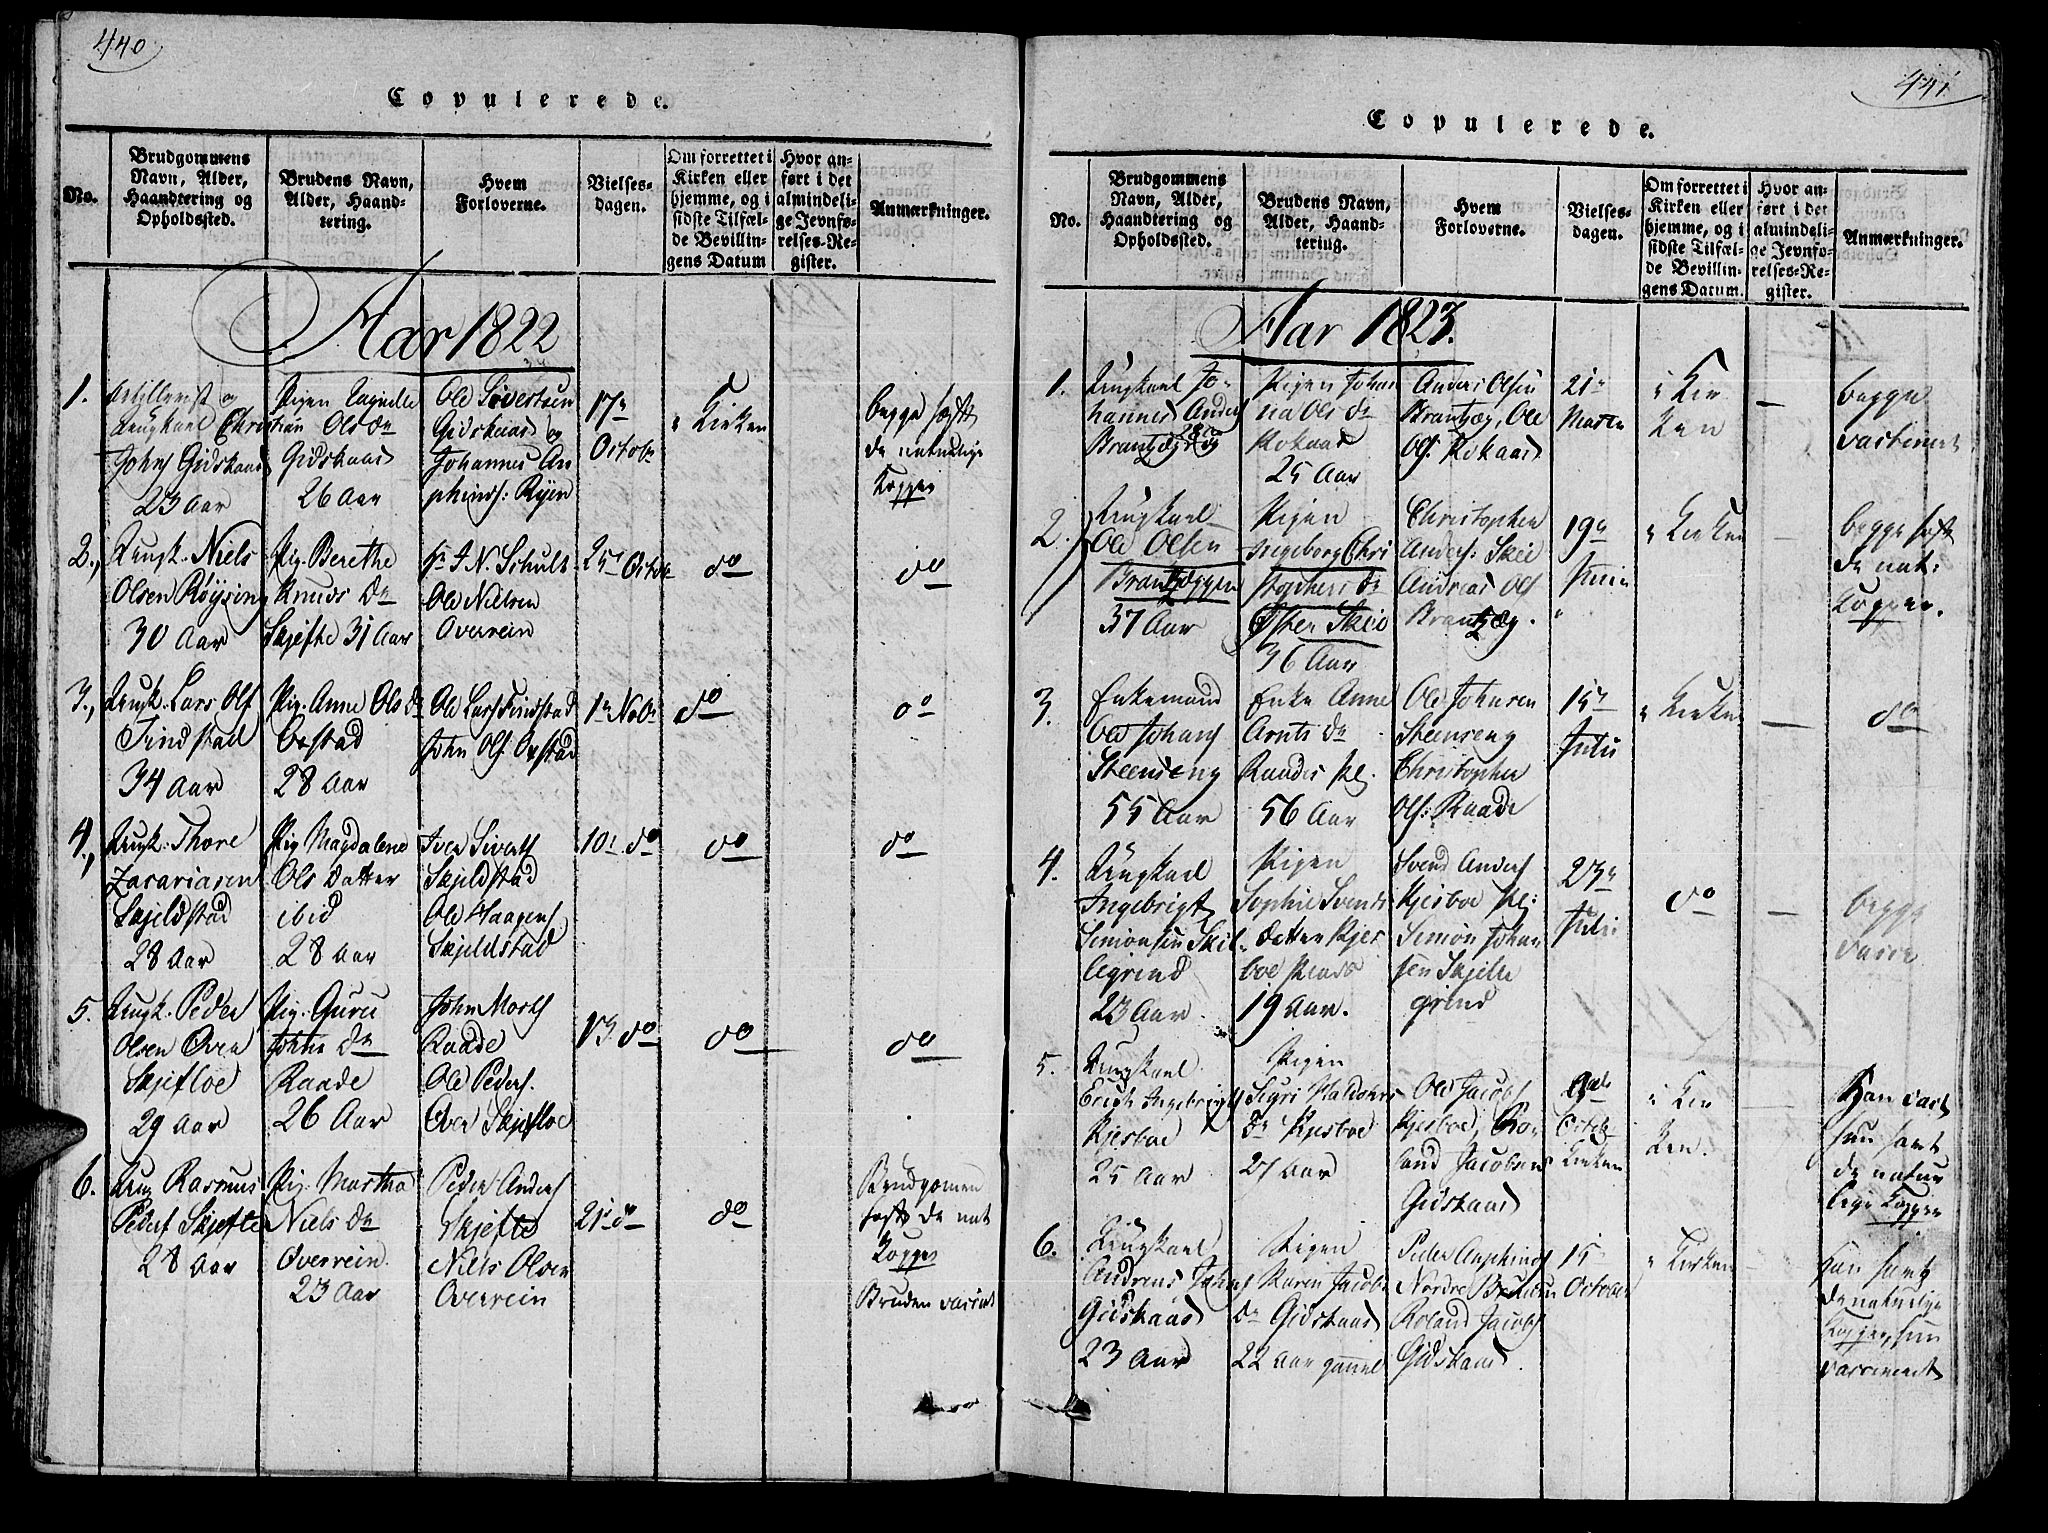 440
Copulerede.
No.
Brudgommens
Navn, Alder,
Haandtering og
Opholdssted.
Brudens Navn,
Alder, Haand-
tering.
Hvem
Forloverne.
Vielses-
dagen.
Om forrettet i
Kirken eller
hjemme, og i
sidste Tilfæl-
de Bevillin-
gens Datum
Hvor an-
ført i det
almindeli-
ge Jevnfø-
relses-Re-
gister.
Anmærkninger.
Aar 1822
1.
Artillerist og
Ungkarl Christian
Johns Gidskaas
23 Aar
Pigen
Ols Dr
Gidskaas
26 Aar
Ole Sivertsen
Gidskaas og
Johannes An
phinds: Ryen
17n
Octobr
i Kirken
begge havt
de naturlige
Kopper
2.,
Ungk. Niels
Olsen Röysing
30 Aar
Pig. Berethe
Knuds Dr
Skjefte 31 Aar
Hr J. N. Schult
Ole Nielsen
Overrein
25n Octobr
do
do
3.,
Ungk. Lars Ols
Findstad
34 Aar
Pig. Anne Ols Dr
Oxstad
28 Aar
Ole Lars Findstad
John Ols Oxstad
1n Nobr
do
do
4.,
Ungk. Thore
Zacariasen
Skjeldstad
28 Aar
Pig Magdalene
Ols Datter
ibid
28 Aar
Iver Siverts
Skjeldstad
Ole Haagens
Skjeldstad
10n do
do
do
5.
Ungk. Peder
Olsen Över
Skjefloe
29 Aar
Pig. Guru
Johns Dr
Raade
26 Aar
John Morts
Raade
Ole Peders.
Över Skjefloe
13 do
do
do
6.
Ung Rasmus
Peders Skjefte
28 Aar
Pig. Martha
Niels Dr
Overrein.
23 Aar
Peder Anders
Skjefte
Niels Olsen
Overrein
21n do
do
Brudgomen
havt de nat
Kopper
Bruden vasinet
441
Copulerede.
No.
Brudgommens
Navn, Alder,
Haandtering og
Opholdssted.
Brudens Navn,
Alder, Haand-
tering.
Hvem
Forloverne.
Vielses-
dagen.
Om forrettet i
Kirken eller
hjemme, og i
sidste Tilfæl-
de Bevillin-
gens Datum.
Hvor an-
ført i det
almindeli-
ge Jevnfø-
relses-Re-
gister.
Anmærkninger.
Aar 1823.
1.
Ungkarl Jo-
hannes Anders
Brantzæg
Pigen Johan
na Ols Dr
Kokaas
25 Aar
Anders Olsen
Brantzæg, Ole
Ols: Kokaas
21n
Marti
i Kir
ken
begge
vacineret
2.
Ungkarl
Ole Olsen
Brantzæggen
37 Aar
Pigen
Ingeborg Chri
stophers Dr
Öster Skei
36 Aar
Christopher
Anders: Skei
Andreas Ols
Brantzæg.
19n
Juni
i Kirken
begge havt
de nat:
Kopper.
3.
Enkemand
Ole Johans
Steenseng
55 Aar
Enke Anne
Arnts Dr
Raades Pl.
56 Aar
Ole Johnsen
Steenseng
Christopher
Ols: Raade
15n
Juli
i Kirken
do
4.
Ungkarl
Ingebrigt
Simonsen Skil
legrind
23 Aar
Pigen
Sophie Svends
datter Kjes
boe
19 Aar.
Svend Anders
Kjesboe Pl:
Simon Johan
sen Skjelle
grind
23n
Juli
do
begge
vacce
5.
Ungkarl
Erich Ingebrigts
Kjesboe
25 Aar
Pigen
Sigri Haldors
Dr Kjesboe
27 Aar
Ole Jacobs
Kjesboe, Ro-
land Jacobsen
Gidskaas
Octob-
Kirken
i Kir
ken.
Han vacc
hun havt
de natur
lige Kopper
6.
Ungkarl
Andreas Johns
Gidskaas
23 Aar
Pigen
Karen Jacobs
Dr Gidskaas
22 Aar gamel
Peder Anphinds
Nordre
Roland Jacobs
Gidskaas.
15
October
i Kirken
han havt
de naturlige
Kopper, hun
vaccineret